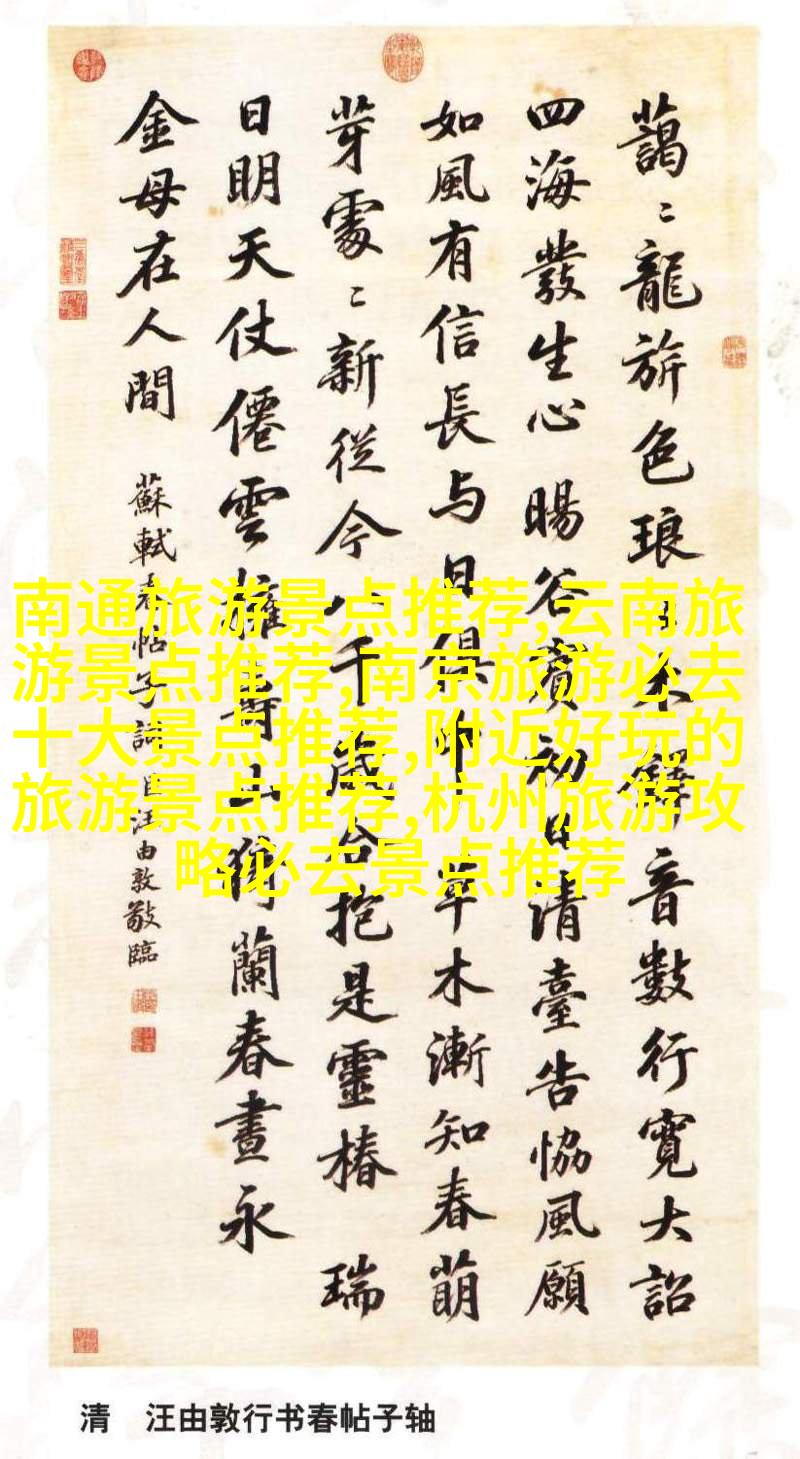 藹〻龍旂色琅〻木鐸音數行寬大詔
四海發生心 暘谷賓初日清臺告協風願
如風有信長与日俱中 草木漸知春萌
芽處〻新從今八千歲合抱是靈椿 瑞
日明天仗僊雲擁壽山猗蘭春晝永
金母在人間 蘇軾春帖子詞 臣汪由敦敬臨
南通旅游景点推荐,云南旅
游景点推荐,南京旅游必去
十大景点推荐,附近好玩的
旅游景点推荐,杭州旅游攻
略必去景点推荐
清 汪由敦行书春帖子轴